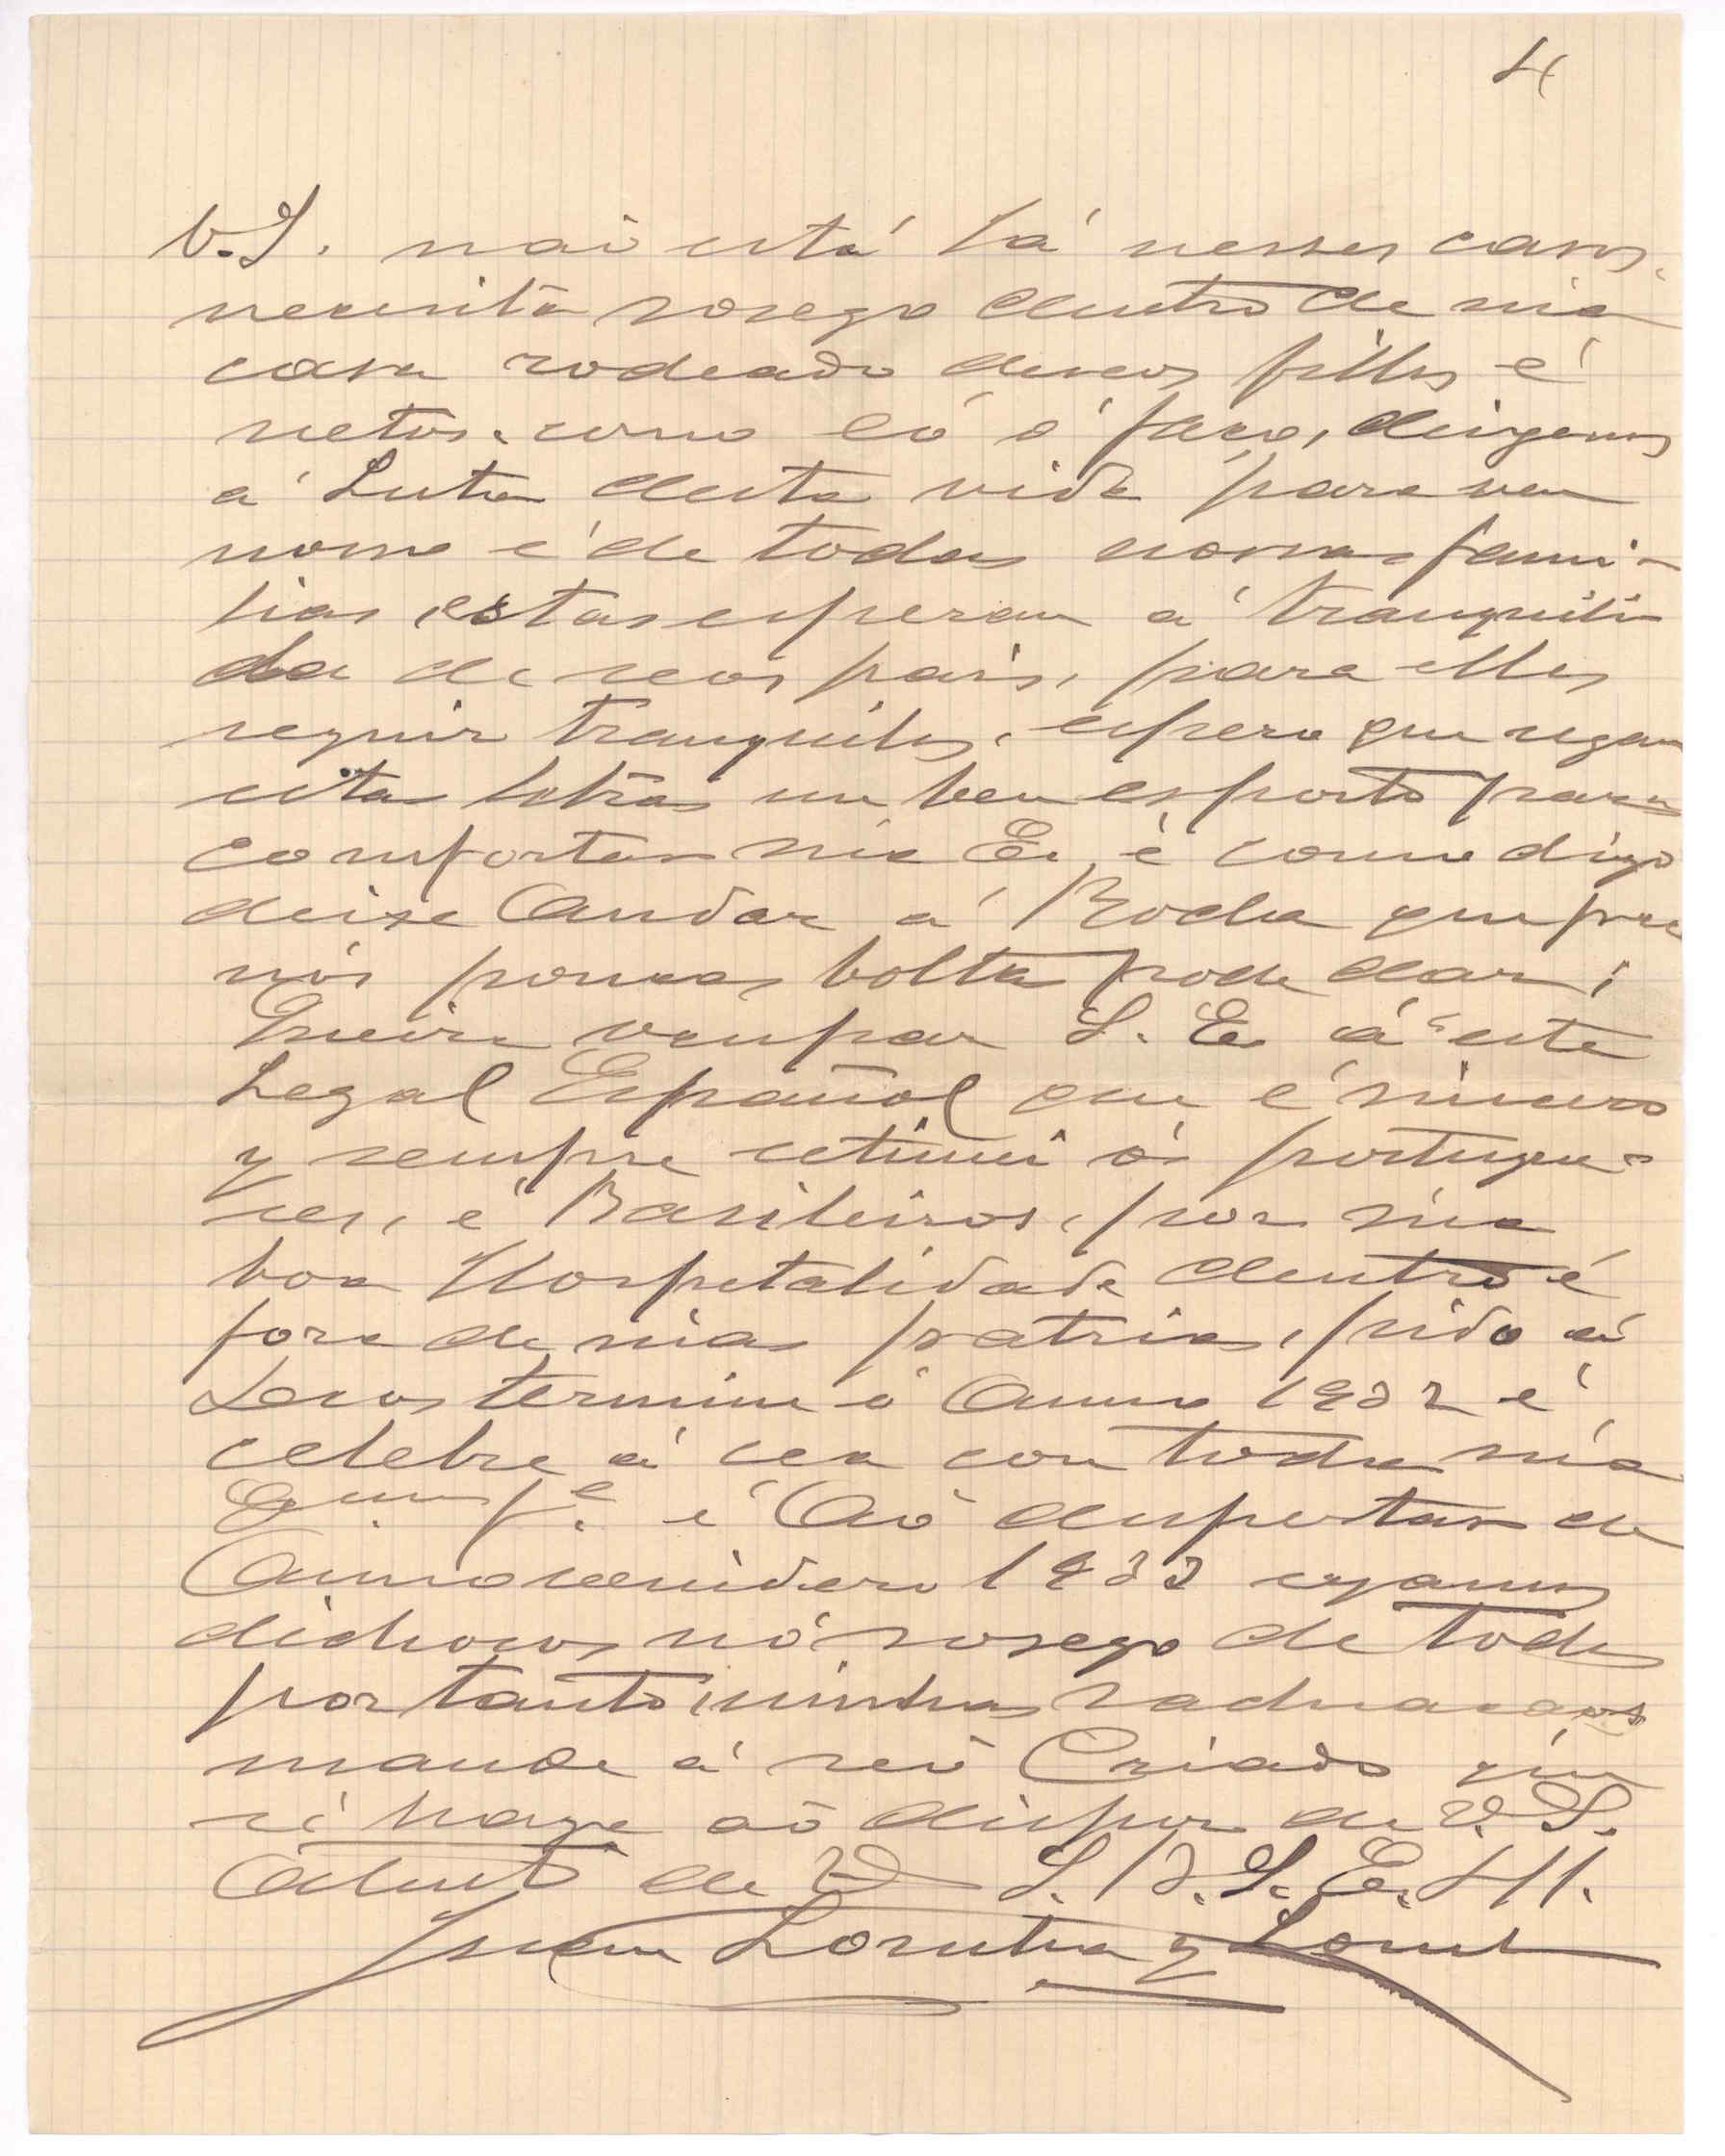 4
V.S. naõ está já nesses casos.
necesita sosego dentro de sua
casa rodeado de seos filhos é
netos. como eó ó faço, deixemos
a' Luta desta vida para
nome é de todas nossas fami-
lias, estas esperan a' tranquili
da de seos pais, para elles
seguir tranquilos. espero que sejan
estas letras un ben esporto para
comfortar sua Ex. é como digo
deixe Andar a' Roda que pra
nós poucas voltas pode dar;
Queira ocupar S. Ex. á este
Legal Español que é sincero
y sempre estimei os portugue-
ses, é Brasileiros, por sua
boa Hospetalidade dentro é
fora de suas patrias, pido á
Deos termine ó Anno 1932 é
celebre á cea con toda sua
Exma. fe. é Aó despertar de
Anno venidero 1933 sejamos
dichosos nó sosego de todos
por tanto minhas
mande á seó Criado que
sé haye aó dispor de V.S.
Atento de V. S. S. S. E. H.
Juan